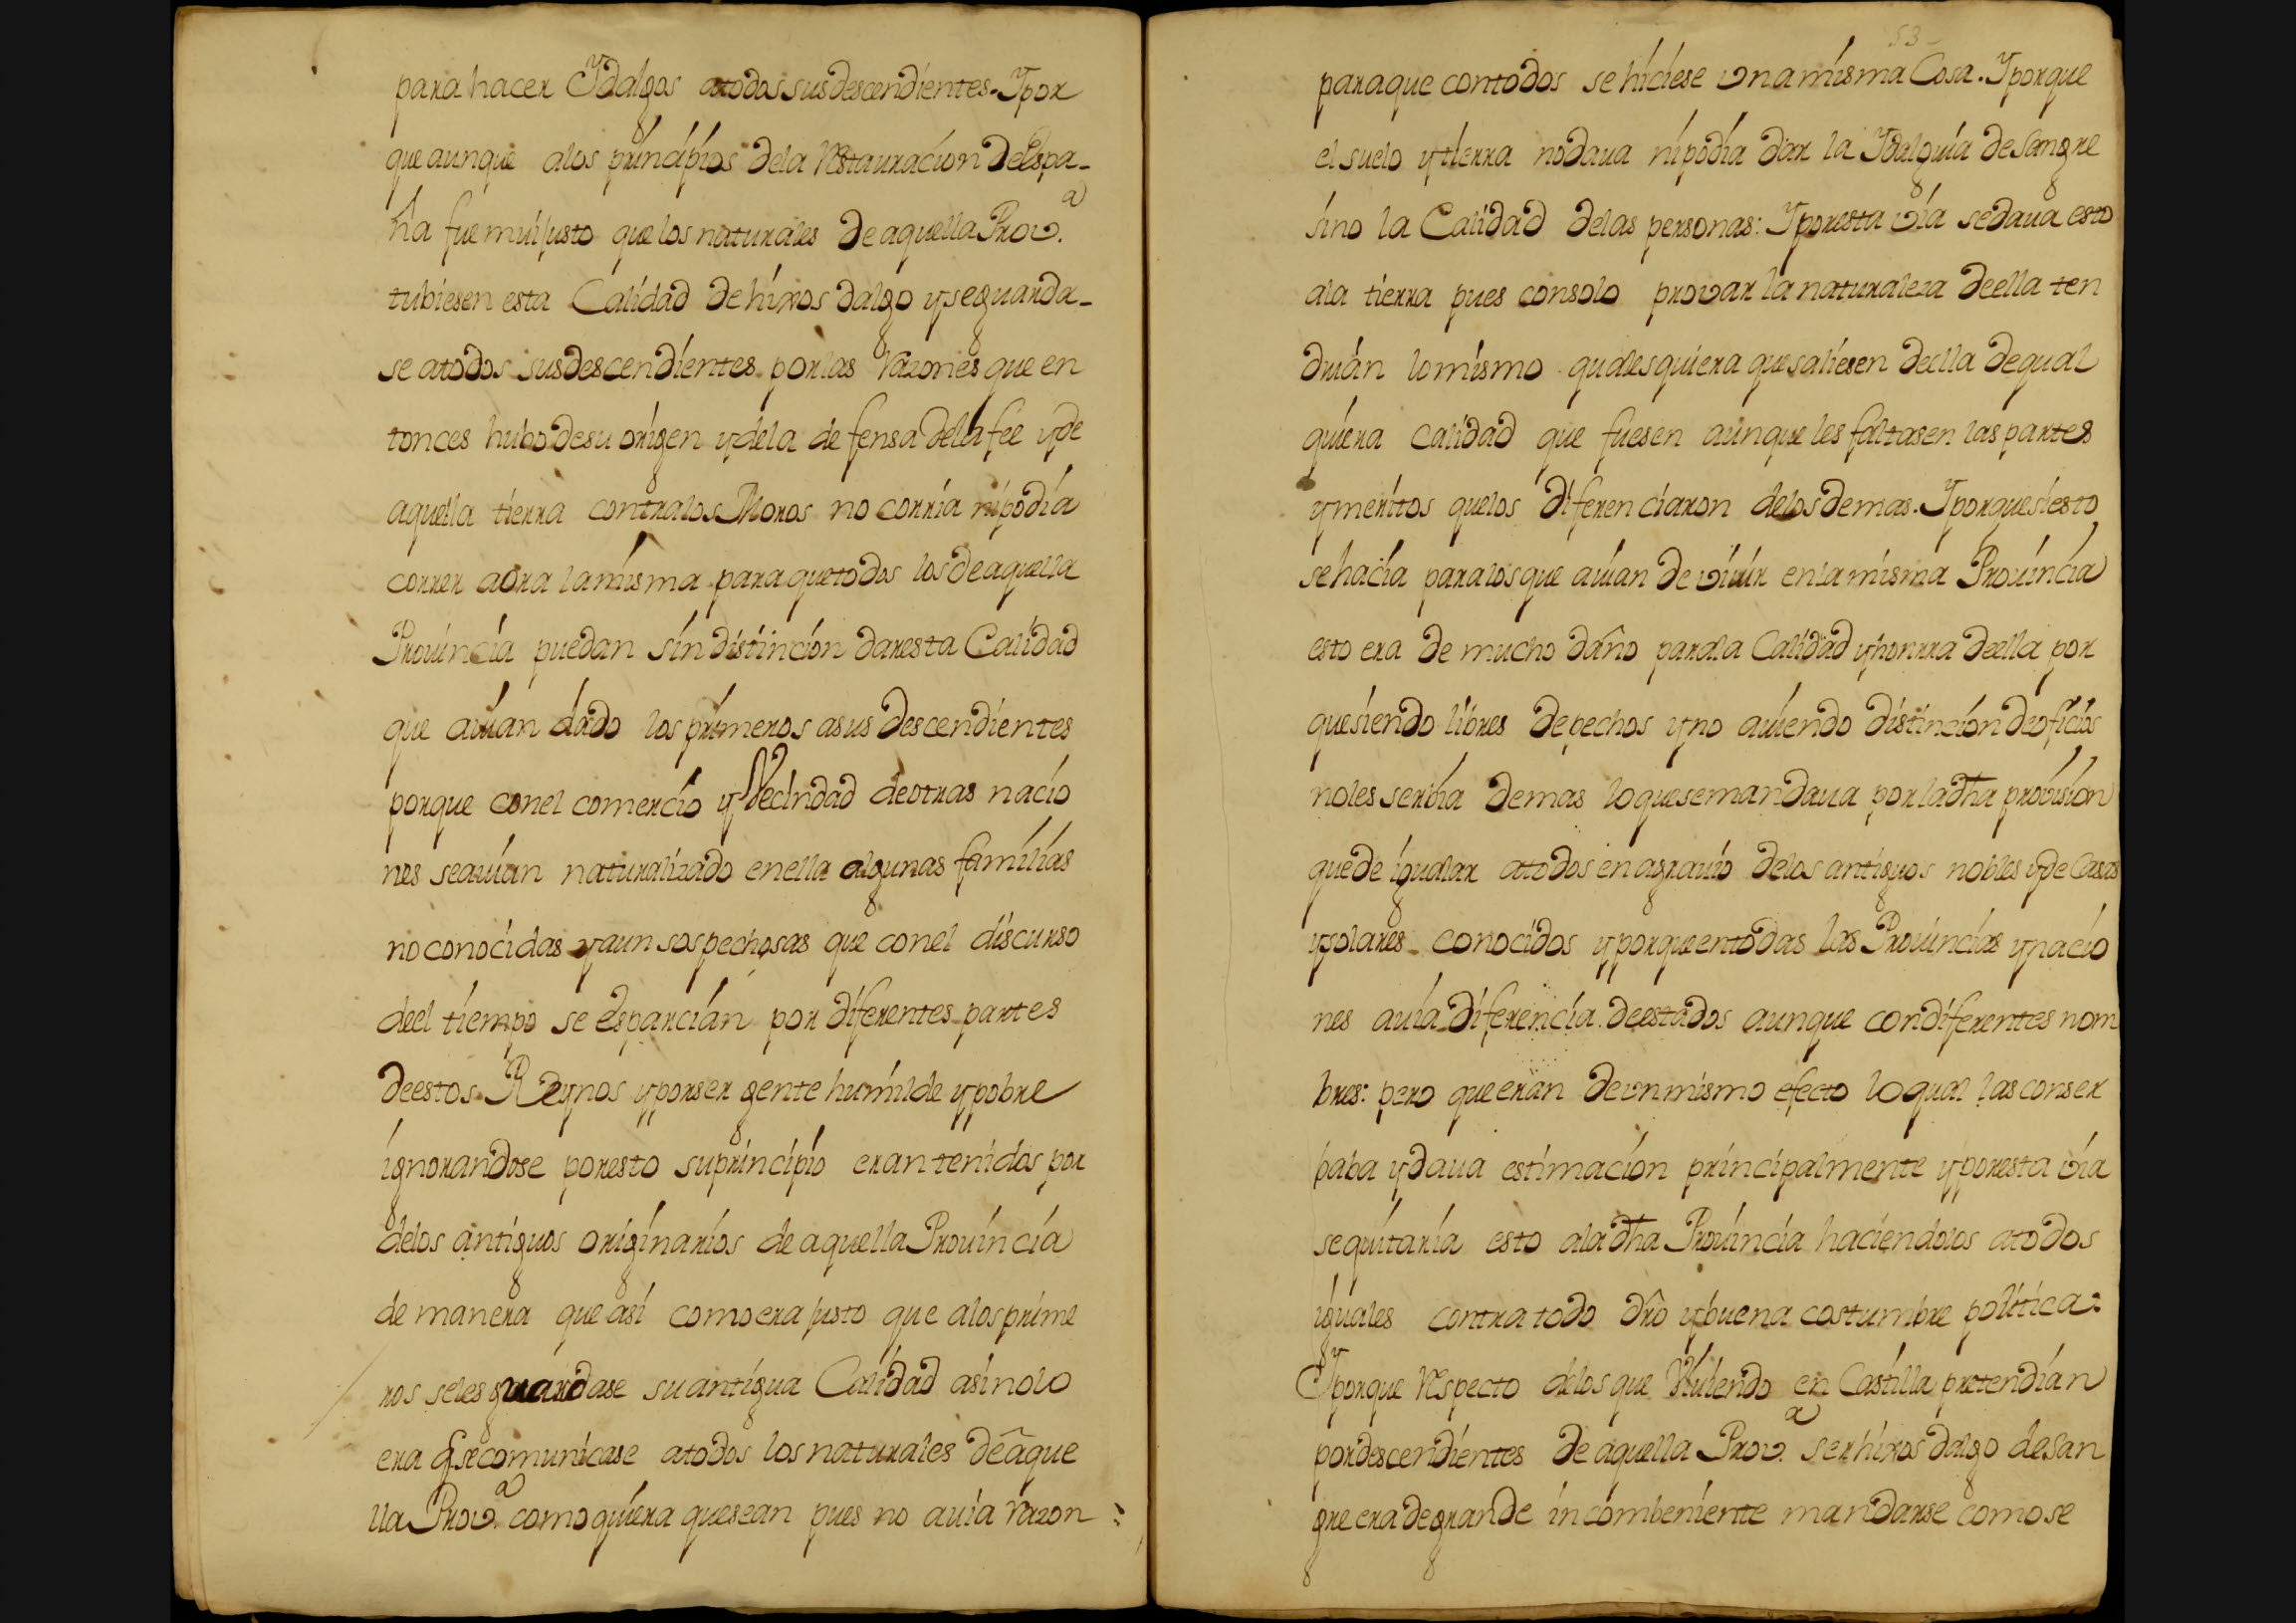 para hacer Ydalgos atodos sus descendientes. Ypor
que aunque alos principios dela Restauracion de Espa-
ña fue mui justo que los naturales de aquella Prov.ª
tubiesen esta Calidad de hixos dalgo y se guarda-
se atodos sus descendientes por las Razones que en
tonces hubo de su origen y dela defensa dela fee y de
aquella tierra contra los Moros no corria ni podia
correr aora la misma para que todos los de aquella
Prouincia puedan sin distincion dar esta Calidad
que auian dado los primeros asus descendientes
porque con el comercio y Vecindad de otras nacio
nes se auian naturalizado en ella algunas familias
no conocidas y aun sospechosas que con el discurso
deel tiempo se esparcian por diferentes partes
deestos Reynos y por ser gente humilde y pobre
ignorandose por esto su principio eran tenidos por
delos antiguos originarios de aquella Prouincia
de manera que asi como era justo que alos prime
ros seles guardase su antigua Calidad asi no lo
era q se comunicase atodos los naturales de aque
lla Prov.ª como quiera que sean pues no auia razon
53
para que con todos se hiciese vna misma Cosa. Y porque
el suelo y tierra no daua ni podia dar la Ydalguia de Sangre
sino la Calidad delas personas: Y por esta via se daua esto
ala tierra pues con solo provar la naturaleza deella ten
drian lo mismo qualesquiera que saliesen deella de qual
quiera calidad que fuesen aunque les faltasen las partes
y meritos que los diferenciaron delos demas. Y porque si esto
se hacia para los que auian de viuir en la misma Prouincia
esto era de mucho daño para la Calidad y honrra deella por
que siendo libres de pechos y no auiendo distincion de oficios
no les serbia de mas lo que se mandaua por la dha provision
que de igualar atodos en agrauio delos antiguos nobles y de Casas
y solares conocidos y porque en todas las Prouincias y nacio
nes auia diferencia de estados aunque con diferentes nom
bres: pero que eran de vn mismo efecto lo qual las conser
baba y daua estimacion principalmente y por esta via
se quitaria esto ala dha Prouincia haciendolos atodos
iguales contra todo dro y buena costumbre politica:
Y porque Respecto delos que Viuiendo en Castilla pretendian
por descendientes de aquella Prov.ª ser hixos dalgo de San
gre era de grande incombeniente mandarse como se